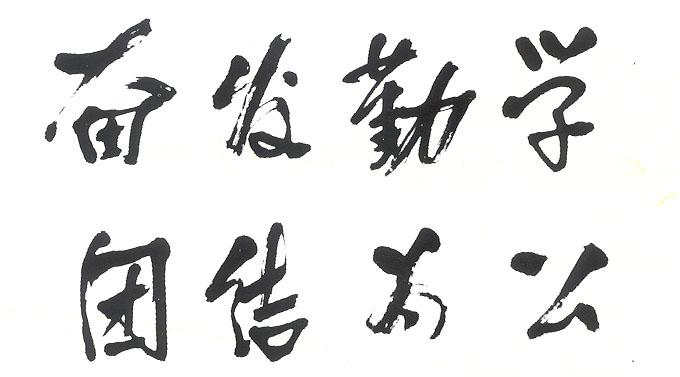 奋发勤学
团结为公